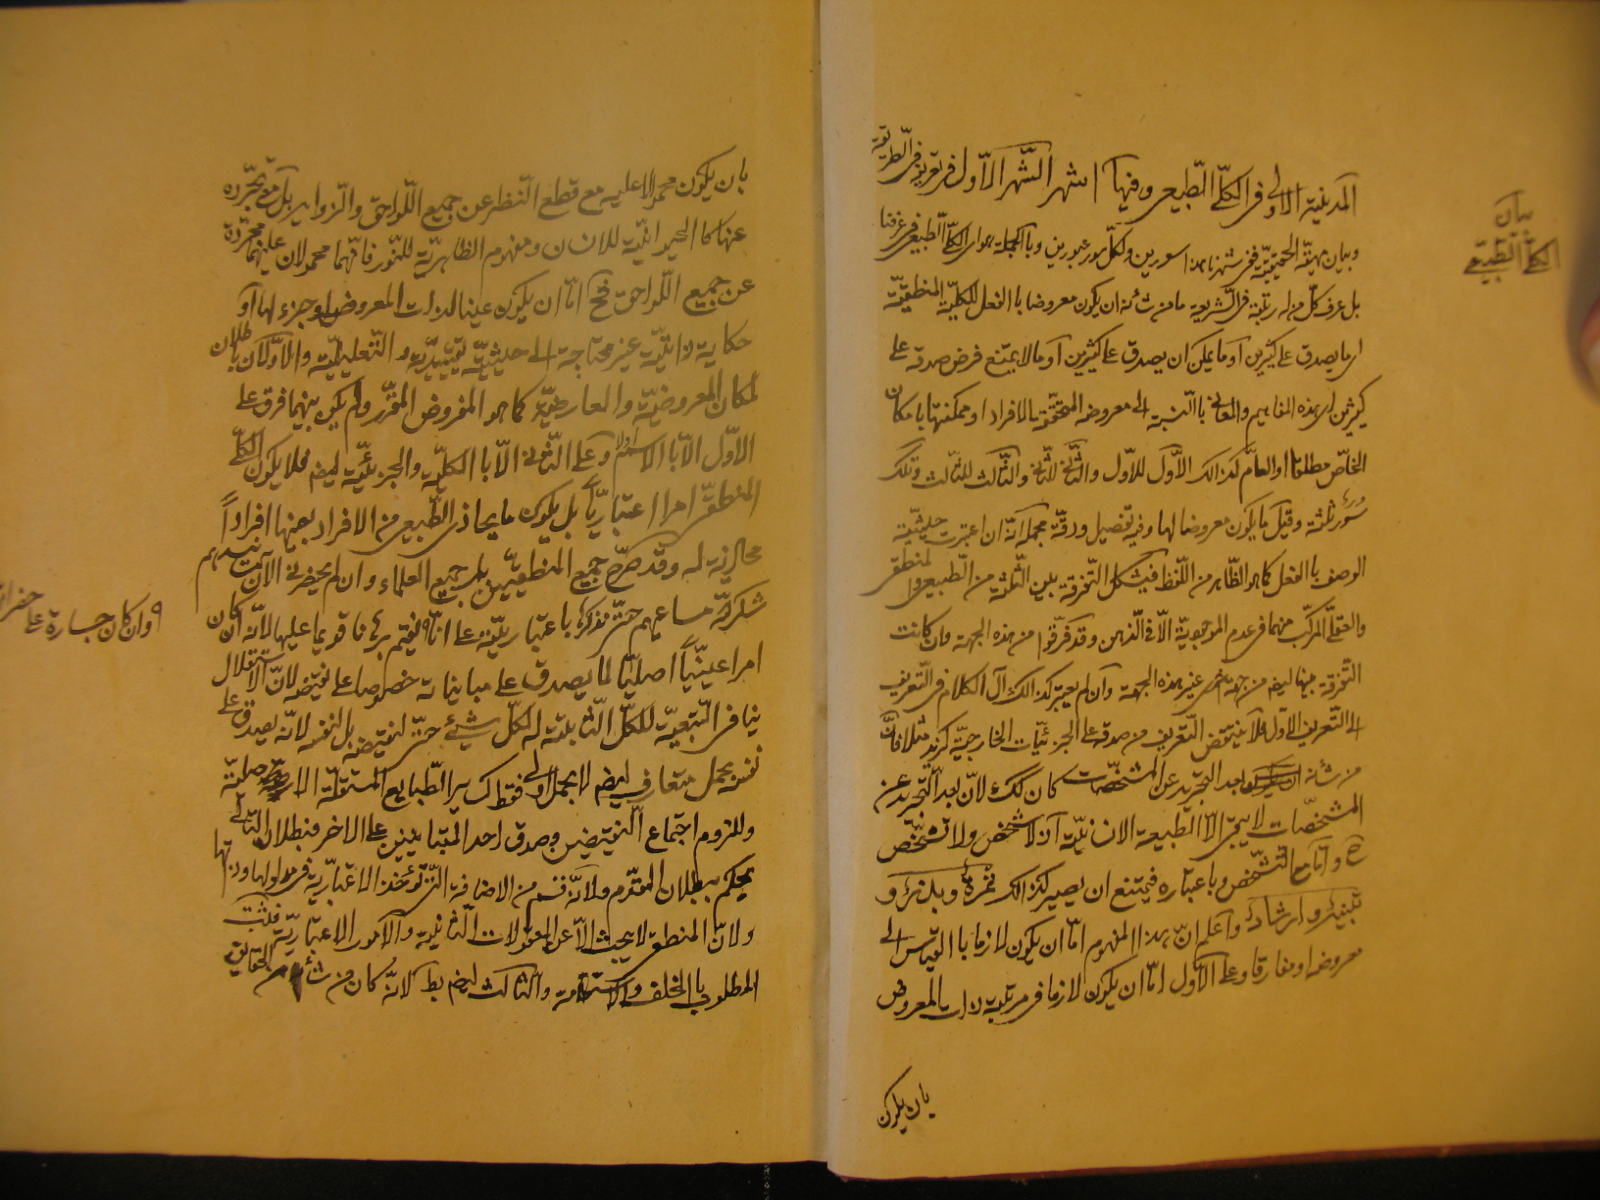 المدينة الاولى فى الكلّى الطّبيعى وفيها اشهر الشّهر الاوّل فى تعريفه فى الطريقة
وبيان مهيّته الحقيقيّة ففى شهرنا هذا سورين ولكلّ سور عبورين وبالجملة هواى الكلّى الطّبيعى فى عرفنا
بيان
الكلّى الطّبيعى
بل عرف كلّ من له رتبة فى الشّريعة ما من شأنه ان يكون معروضا بالفعل للكليّة المنطقيّة
اى ما يصدق على كثيرين او ما يمكن ان يصدق على كثيرين او ما لا يمتنع فرض صدقه على
كثيرين اى هذه المفاهيم والمعانى بالنسبة الى معروضه المتحقّقة بالافراد او ممكنتها بامكان
الخاصّ مطلقا او العامّ كذالك الاوّل للاوّل والثّانى للثّانى والثّالث للثّالث وتلك
سُوَر ثلثة وقيل ما يكون معروضا لها وفيه تفصيل ودقّة مجمله انّه ان اعتبرت حيثيّة
الوصف بالفعل كما هو الظّاهر من اللّفظ فيشكل التّفرقة بين الثّلثة من الطّبيعى والمنطقى
والعقلى المركّب منهما فى عدم الموجوديّة الّا فى الذّهن وقد فرّقوا من هذه الجهة وان كانت
التّفرقة بينها ايضم من جهة اخرى غير هذه الجهة وان لم يعتبر كذالك آل الكلام فى التّعريف
الى التّعريف الاوّل فلا ينتقض التّعريف من صدقه على الجزئيّات الخارجيّة كزيد مثلا فانّ
من شأنه بعد التجريد عن المشخّصات كان كك لانّ بعد التّجريد عن
المشخّصات لا يبقى الّا الطّبيعة الانسانيّة اذ لا شخص ولا تشخّص
ح وامّا مع التّشخّص وباعتباره فيمتنع ان يصير كذالك ثمرةٌ وبذرٌ و
تنبيهٌ وارشادٌ واعلم انّ هذا المفهوم امّا ان يكون لازما بالقياس الى
معروضه او مفارقا وعلى الاوّل امّا ان يكون لازما فى مرتبة ذات المعروض
بان يكون
بان يكون محمولا عليه مع قطع النّظر عن جميع اللّواحق والزّوايد بل مع تجرّده
عنها كالحيوانيّة للانسان ومفهوم الظاهريّة للنّور فانّهما محمولان عليهما مجرّدة
عن جميع اللّواحق فح امّا ان يكون عينا لذات المعروض او جزء لها او
حكاية ذاتيّة غير محتاجة الى حيثيّة تقييديّة و التّعليليّة والاوّلان باطلان
لمكان المعروضيّة والعارضيّة كما هو المفروض المقرّر ولم يكن بينهما فرق على
الاوّل الّا بالاسم وعلى الثّانى الّا بالكليّة والجزئيّة ايضم فلا يكون الكلّى
المنطقىّ امرا اعتباريّاً بل يكون ما يحاذى الطّبيعى من الافراد بعينها افراداً
محاذية له وقد صرّح جميع المنطقيّين بل جميع العلماء وان لم يحضرنى الآن كتبهم
شكر اللّه مساعيهم حتّى نذكرها باعتباريّته على انّا نقيم برهانا قويما عليها لانّه ان كان
وان كان جسارة على حضرات
امرا عينيّاً اصليّا لما يصدق على مبايناته خصوصا على نقيضه لانّ الاستقلال
ينافى التّبعيّة للكلّ الثّابتة له لكلّ شيئ حتّى لنقيضه بل لنفسه لانّه يصدق على
نفسه بحمل متعارف ايضم لا بحمل اوّلى فقط ك ساير الطّبايع المستقلّة الاصليّة
وللزوم اجتماع النّقيضين وصدق احد المتباينين على الاخر فبطلان التّالى
يحكم ببطلان المقدّم ولانّه قسم من الاضافة الّتى تؤخذ الاعتباريّة فى مدلولها وذاتها
ولانّ المنطقى لا يبحث الّا عن المعقولات الثّانية والامور الاعتباريّة فثبت
المطلوب بالخلف والاستقامة والثالث ايضم بط لانّه كان من شأنه من الحقايق